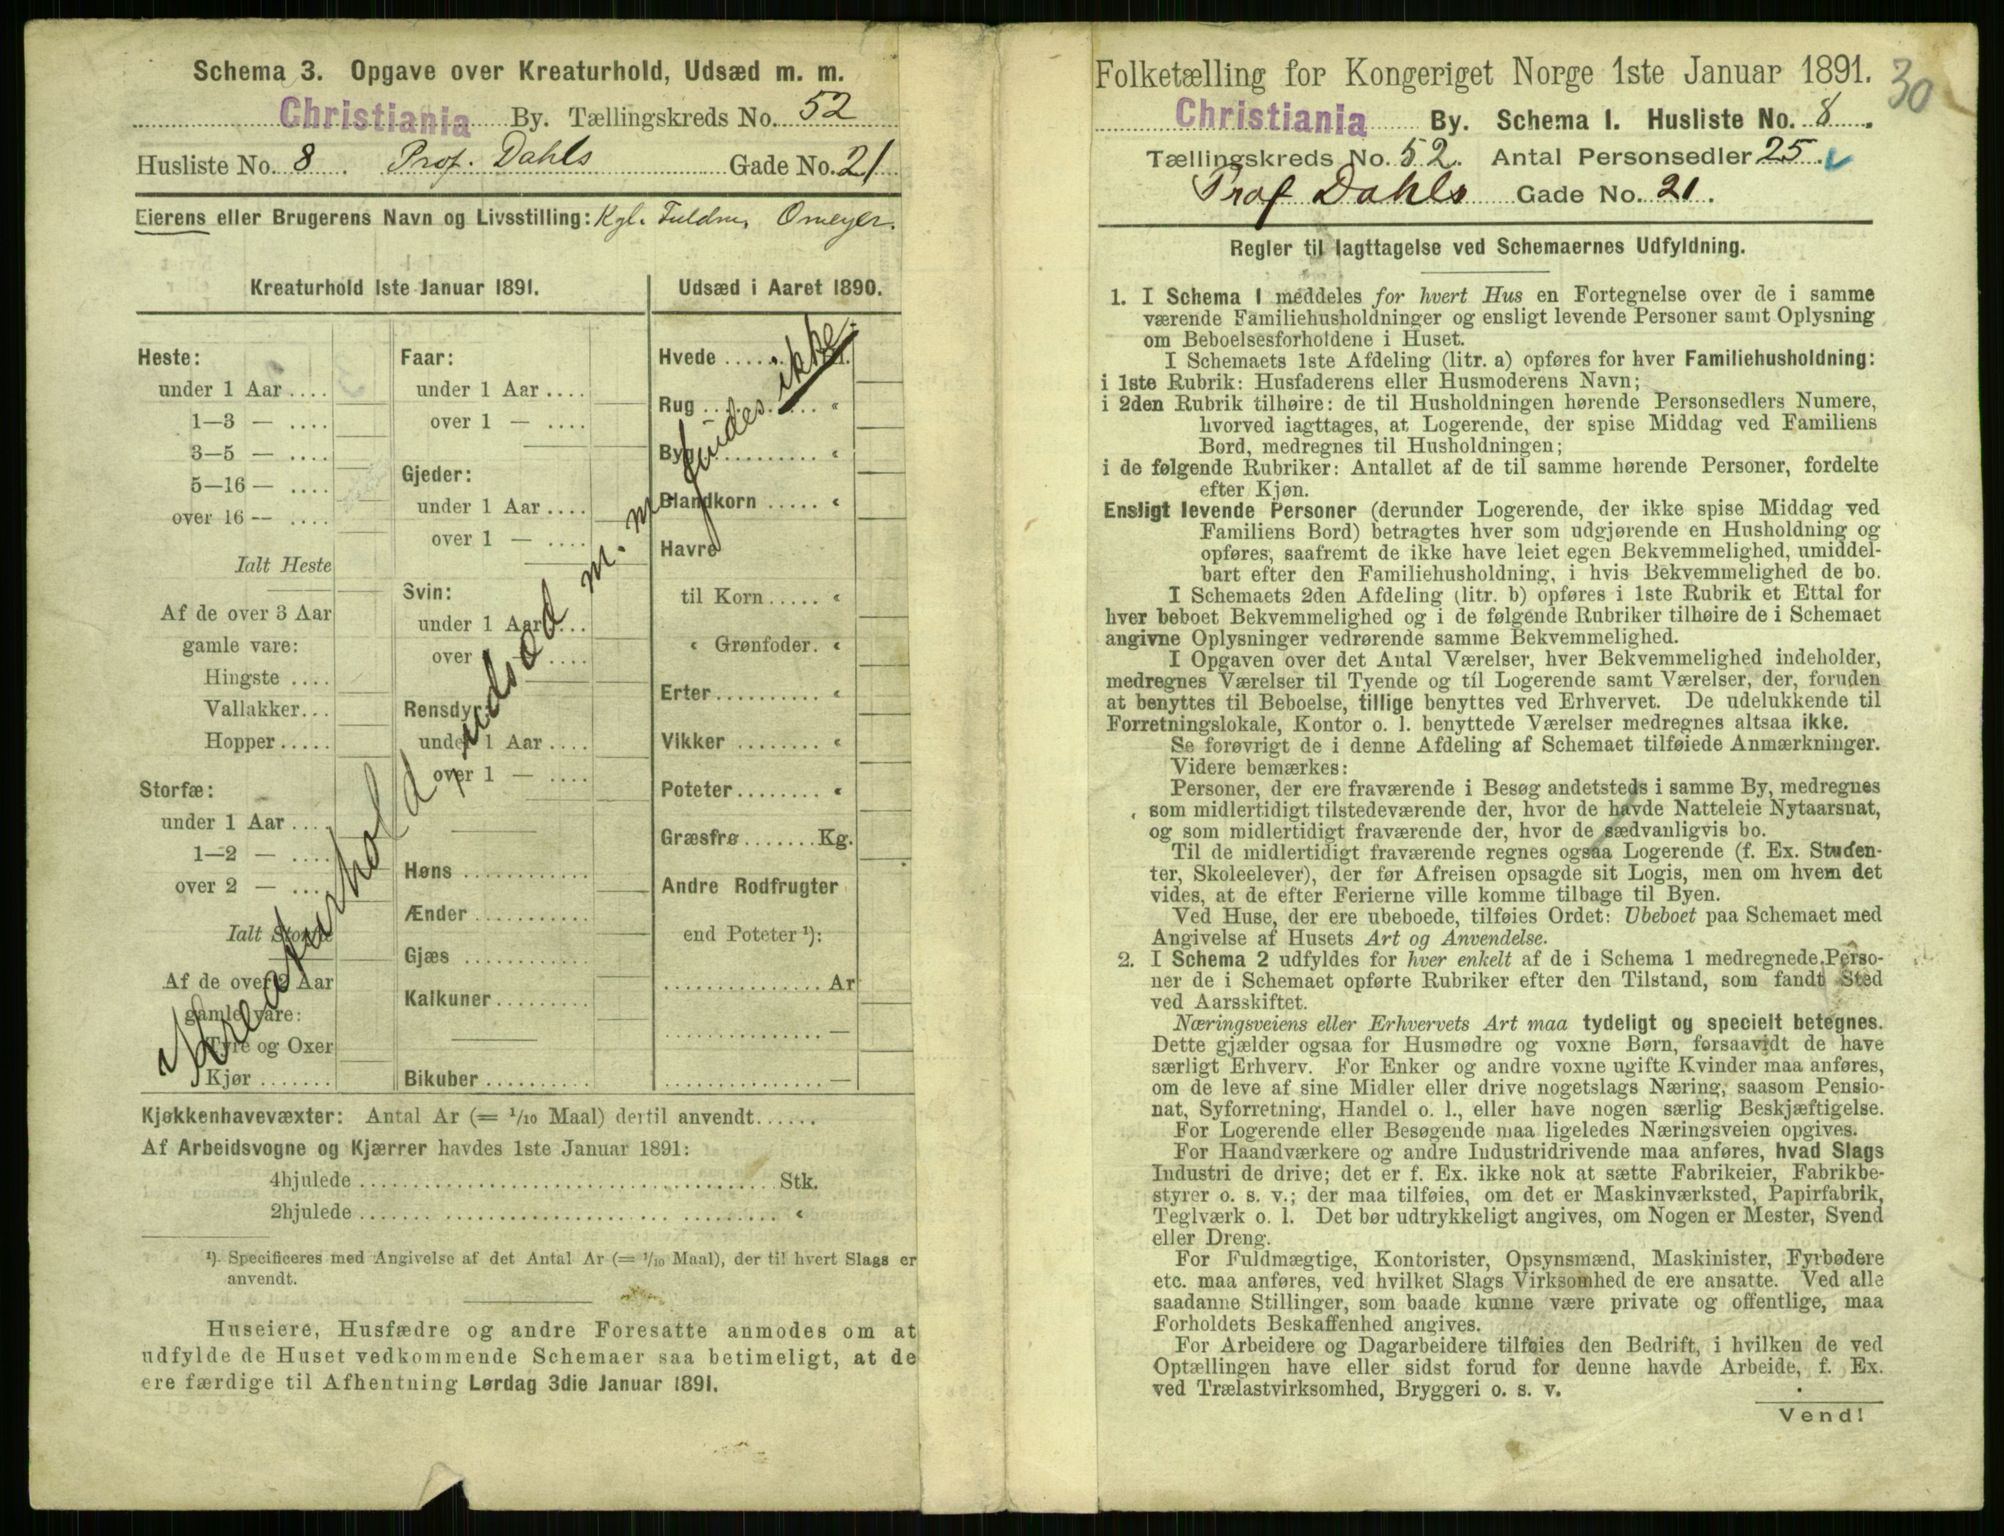 Schema 3. Opgave over Kreaturhold, Udsæd m. m.
Christiania By. Tællingskreds No. 52
Husliste No. 8. Prof. Dahls Gade No. 21
Eierens eller Brugerens Navn og Livsstilling: Kgl. Fuldm. Omeyer.
Kreaturhold 1ste Januar 1891.
Udsæd i Aaret 1890.
Heste:
under 1 Aar ....
1—3 — ....
3—5 — ....
5—16 — ....
over 16 — ....
Ialt Heste
Af de over 3 Aar
gamle vare:
Hingste ....
Vallakker...
Hopper.....
Storfæ:
under 1 Aar ....
1—2 — ....
over 2 — ....
Ialt Storfæ
Af de over 2 Aar
gamle vare:
Tyre og Oxer
Kjør .......
Faar:
under 1 Aar ....
over 1 — ....
Gjeder:
under 1 Aar ....
over 1 — ....
Svin:
under 1 Aar ....
over — ....
Rensdyr:
under 1 Aar ....
over 1 — ....
Høns ............
Ænder ...........
Gjæs ............
Kalkuner.........
Bikuber ..........
Hvede ...... Hl.
Rug ........... "
Byg ........... "
Blandkorn ..... "
Havre
til Korn ..... "
" Grønfoder. "
Erter .......... "
Vikker ........ "
Poteter ........ "
Græsfrø ....... Kg.
Andre Rodfrugter
end Poteter ¹):
................ Ar
................ —
................ —
Kreaturhold, udsæd m. m. findes ikke.
Kjøkkenhavevæxter: Antal Ar (= 1/10 Maal) dertil anvendt......
Af Arbeidsvogne og Kjærrer havdes 1ste Januar 1891:
4hjulede ........................................ Stk.
2hjulede ........................................ "
¹). Specificeres med Angivelse af det Antal Ar (= 1/10 Maal), der til hvert Slags er
anvendt.
Huseiere, Husfædre og andre Foresatte anmodes om at
udfylde de Huset vedkommende Schemaer saa betimeligt, at de
ere færdige til Afhentning Lørdag 3die Januar 1891.
Folketælling for Kongeriget Norge 1ste Januar 1891.
30
Christiania By. Schema 1. Husliste No. 8.
Tællingskreds No. 52. Antal Personsedler 25.
Prof Dahls Gade No. 21.
Regler til Iagttagelse ved Schemaernes Udfyldning.
1. I Schema 1 meddeles for hvert Hus en Fortegnelse over de i samme
værende Familiehusholdninger og ensligt levende Personer samt Oplysning
om Beboelsesforholdene i Huset.
I Schemaets 1ste Afdeling (litr. a) opføres for hver Familiehusholdning:
i 1ste Rubrik: Husfaderens eller Husmoderens Navn;
i 2den Rubrik tilhøire: de til Husholdningen hørende Personsedlers Numere,
hvorved iagttages, at Logerende, der spise Middag ved Familiens
Bord, medregnes til Husholdningen;
i de følgende Rubriker: Antallet af de til samme hørende Personer, fordelte
efter Kjøn.
Ensligt levende Personer (derunder Logerende, der ikke spise Middag ved
Familiens Bord) betragtes hver som udgjørende en Husholdning og
opføres, saafremt de ikke have leiet egen Bekvemmelighed, umiddel-
bart efter den Familiehusholdning, i hvis Bekvemmelighed de bo.
I Schemaets 2den Afdeling (litr. b) opføres i 1ste Rubrik et Ettal for
hver beboet Bekvemmelighed og i de følgende Rubriker tilhøire de i Schemaet
angivne Oplysninger vedrørende samme Bekvemmelighed.
I Opgaven over det Antal Værelser, hver Bekvemmelighed indeholder,
medregnes Værelser til Tyende og til Logerende samt Værelser, der, foruden
at benyttes til Beboelse, tillige benyttes ved Erhvervet. De udelukkende til
Forretningslokale, Kontor o. l. benyttede Værelser medregnes altsaa ikke.
Se forøvrigt de i denne Afdeling af Schemaet tilføiede Anmærkninger.
Videre bemærkes:
Personer, der ere fraværende i Besøg andetsteds i samme By, medregnes
som midlertidigt tilstedeværende der, hvor de havde Natteleie Nytaarsnat,
og som midlertidigt fraværende der, hvor de sædvanligvis bo.
Til de midlertidigt fraværende regnes ogsaa Logerende (f. Ex. Studen-
ter, Skoleelever), der før Afreisen opsagde sit Logis, men om hvem det
vides, at de efter Ferierne ville komme tilbage til Byen.
Ved Huse, der ere ubeboede, tilføies Ordet: Ubeboet paa Schemaet med
Angivelse af Husets Art og Anvendelse.
2. I Schema 2 udfyldes for hver enkelt af de i Schema 1 medregnede Perso-
ner de i Schemaet opførte Rubriker efter den Tilstand, som fandt Sted
ved Aarsskiftet.
Næringsveiens eller Erhvervets Art maa tydeligt og specielt betegnes.
Dette gjælder ogsaa for Husmødre og voxne Børn, forsaavidt de have
særligt Erhverv. For Enker og andre voxne ugifte Kvinder maa anføres,
om de leve af sine Midler eller drive nogetslags Næring, saasom Pensio-
nat, Syforretning, Handel o. l., eller have nogen særlig Beskjæftigelse.
For Logerende eller Besøgende maa ligeledes Næringsveien opgives.
For Haandværkere og andre Industridrivende maa anføres, hvad Slags
Industri de drive; det er f. Ex. ikke nok at sætte Fabrikeier, Fabrikbe-
styrer o. s. v.; der maa tilføies, om det er Maskinværksted, Papirfabrik,
Teglværk o. l. Det bør udtrykkeligt angives, om Nogen er Mester, Svend
eller Dreng.
For Fuldmægtige, Kontorister, Opsynsmænd, Maskinister, Fyrbødere
etc. maa anføres, ved hvilket Slags Virksomhed de ere ansatte. Ved alle
saadanne Stillinger, som baade kunne være private og offentlige, maa
Forholdets Beskaffenhed angives.
For Arbeidere og Dagarbeidere tilføies den Bedrift, i hvilken de ved
Optællingen have eller sidst forud for denne havde Arbeide, f. Ex.
ved Trælastvirksomhed, Bryggeri o. s. v.
Vend!